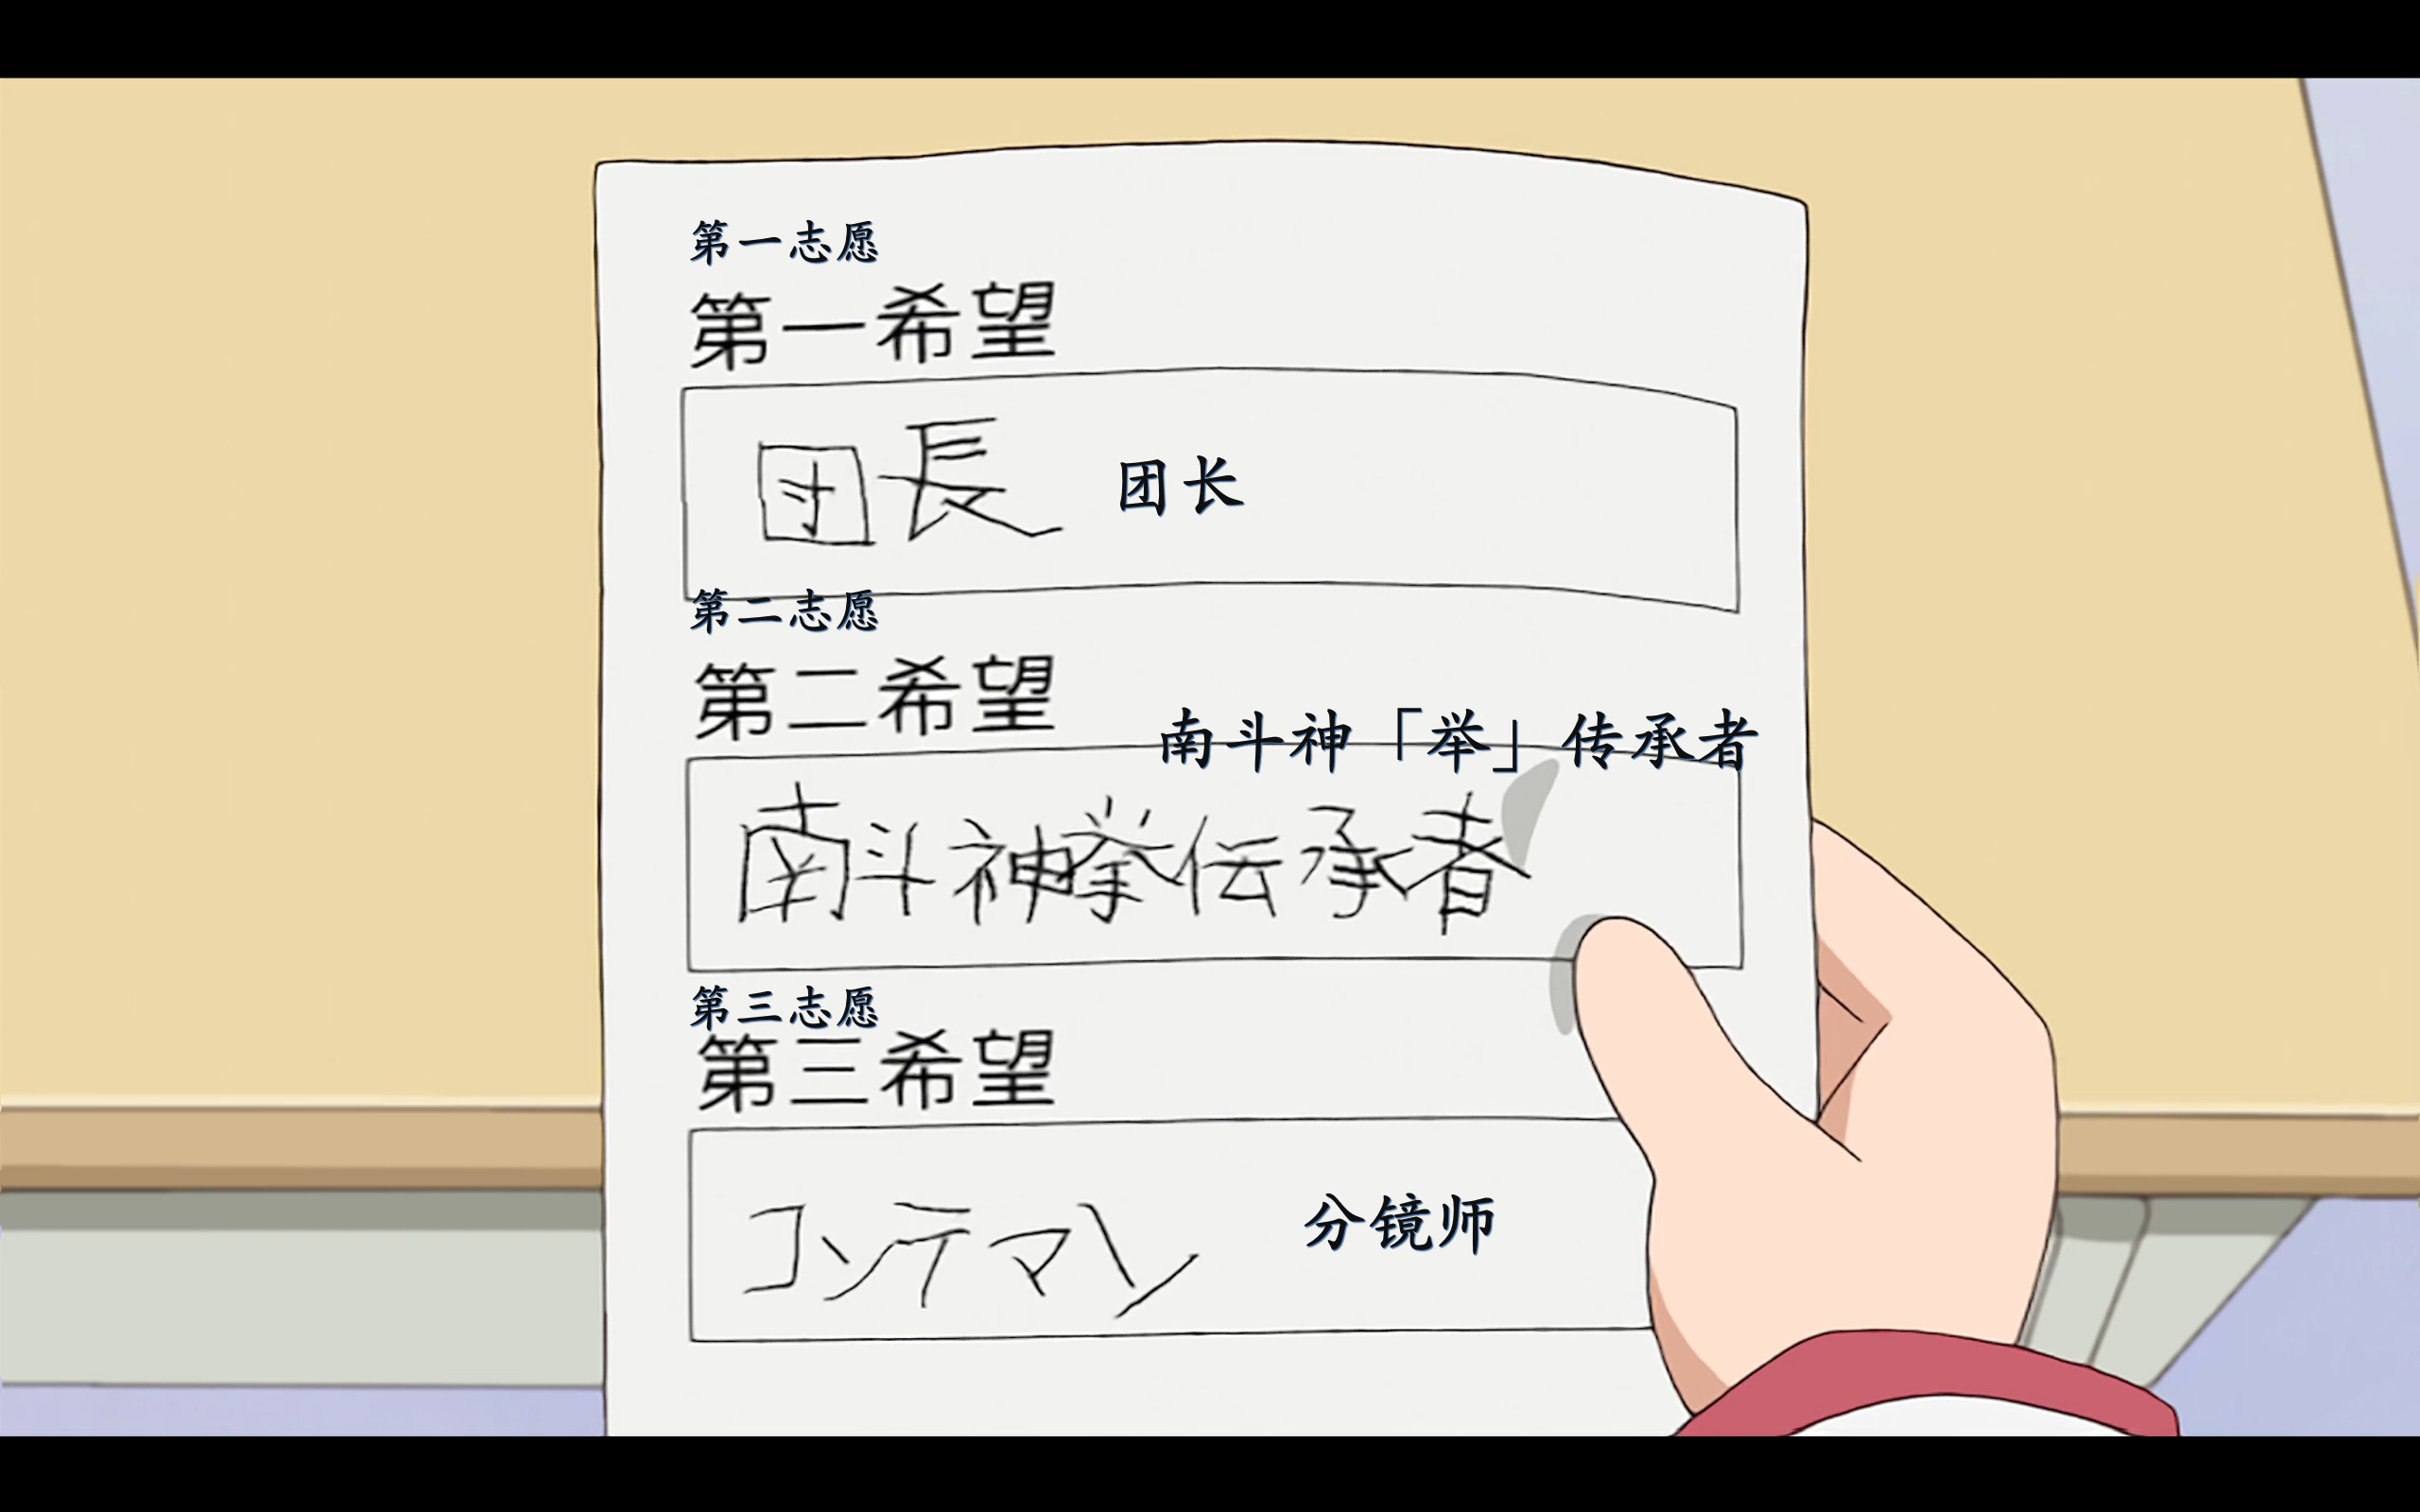 第一志愿
第一希望
団長 团长
第二志愿
第二希望
南斗神「举」传承者
南斗神挙伝承者
第三志愿
第三希望
コンテマン 分镜师